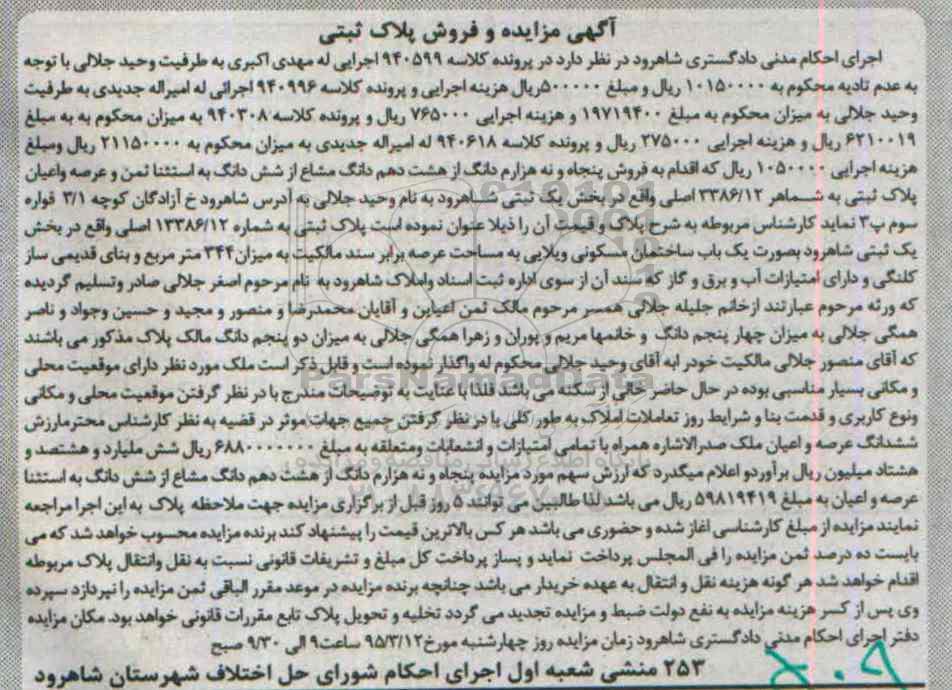 آگهی مزایده و فروش پلاک ثبتی
اجرای احکام مدنی دادگستری شاهرود در نظر دارد در پرونده کلاسه ۹۴۰۵۹۹ اجرایی له مهدی اکبری به طرفیت وحید جلالی با توجه
به عدم تادیه محکوم به ۱۰۱۵۰۰۰۰ ریال و مبلغ ۵۰۰۰۰۰ریال هزینه اجرایی و پرونده کلاسه ۹۴۰۹۹۶ اجرائی له امیراله جدیدی به طرفیت
وحید جلالی به میزان محکوم به مبلغ ۱۹۷۱۹۴۰۰ و هزینه اجرایی ۷۶۵۰۰۰ ریال و پرونده کلاسه ۹۴۰۳۰۸ به میزان محکوم به به مبلغ
۶۲۱۰۰۱۹ ریال و هزینه اجرایی ۲۷۵۰۰۰ ریال و پرونده کلاسه ۹۴۰۶۱۸ له امیراله جدیدی به میزان محکوم به ۲۱۱۵۰۰۰۰ ریال ومبلغ
هزینه اجرایی ۱۰۵۰۰۰۰ ریال که اقدام به فروش پنجاه و نه هزارم دانگ از هشت دهم دانگ مشاع از شش دانگ به استثنا ثمن و عرصه واعیان
پلاک ثبتی به شماهر ۳۳۸۶/۱۲ اصلی واقع در بخش یک ثبتی شاهرود به نام وحید جلالی به آدرس شاهرود خ آزادگان کوچه ۳/۱ فواره
سوم پ۳ نماید کارشناس مربوطه به شرح پلاک و قیمت آن را ذیلا عنوان نموده است پلاک ثبتی به شماره ۱۳۳۸۶/۱۲ اصلی واقع در بخش
یک ثبتی شاهرود بصورت یک باب ساختمان مسکونی ویلایی به مساحت عرصه برابر سند مالکیت به میزان ۳۴۴ متر مربع و بنای قدیمی ساز
کلنگی و دارای امتیازات آب و برق و گاز که سند آن از سوی اداره ثبت اسناد واملاک شاهرود به نام مرحوم اصغر جلالی صادر وتسلیم گردیده
که ورثه مرحوم عبارتند ازخانم جلیله جلالی همسر مرحوم مالک ثمن اعیاین و آقایان محمدرضا و منصور و مجید و حسین وجواد و ناصر
همگی جلالی به میزان چهار پنجم دانگ و خانمها مریم و پوران و زهرا همگی جلالی به میزان دو پنجم دانگ مالک پلاک مذکور می باشند
که آقای منصور جلالی مالکیت خودر ابه آقای وحید جلالی محکوم له واگذار نموده است و قابل ذکر است ملک مورد نظر دارای موقعیت محلی
و مکانی بسیار مناسبی بوده در حال حاضر خالی از سکنه می باشد فلذا با عنایت به توضیحات مندرج با در نظر گرفتن موقعیت محلی و مکانی
ونوع کاربری و قدمت بنا و شرایط روز تعاملات املاک به طور کلی با در نظر گرفتن جمیع جهات موثر در قضیه به نظر کارشناس محترمارزش
ششدانگ عرصه و اعیان ملک صدرالاشاره همراه با تمامی امتیازات و انشعابات ومتعلقه به مبلغ ۶۸۸۰۰۰۰۰۰۰ ریال شش ملیارد و هشتصد و
هشتاد میلیون ریال برآوردو اعلام میگدرد که ارزش سهم مورد مزایده پنجاه و نه هزارم دانگ از هشت دهم دانگ مشاع از شش دانگ به استثنا
عرصه و اعیان به مبلغ ۵۹۸۱۹۴۱۹ ریال می باشد لذا طالبین می توانند ۵ روز قبل از برگزاری مزایده جهت ملاحظه پلاک به این اجرا مراجعه
نمایند مزایده از مبلغ کارشناسی اغاز شده و حضوری می باشد هر کس بالاترین قیمت را پیشنهاد کند برنده مزایده محسوب خواهد شد که می
بایست ده درصد ثمن مزایده را فی المجلس پرداخت نماید و پساز پرداخت کل مبلغ و تشریفات قانونی نسبت به نقل وانتقال پلاک مربوطه
اقدام خواهد شد هر گونه هزینه نقل و انتقال به عهده خریدار می باشد چنانچه برنده مزایده در موعد مقرر الباقی ثمن مزایده را نپردازد سپرده
وی پس از کسر هزینه مزایده به نفع دولت ضبط و مزایده تجدید می گردد تخلیه و تحویل پلاک تابع مقررات قانونی خواهد بود. مکان مزایده
دفتر اجرای احکام مدنی دادگستری شاهرود زمان مزایده روز چهارشنبه مورخ ۹۵/۳/۱۲ ساعت ۹ الی ۹/۳۰ صبح
۲۵۳ منشی شعبه اول اجرای احکام شورای حل اختلاف شهرستان شاهرود
ParsNamadData